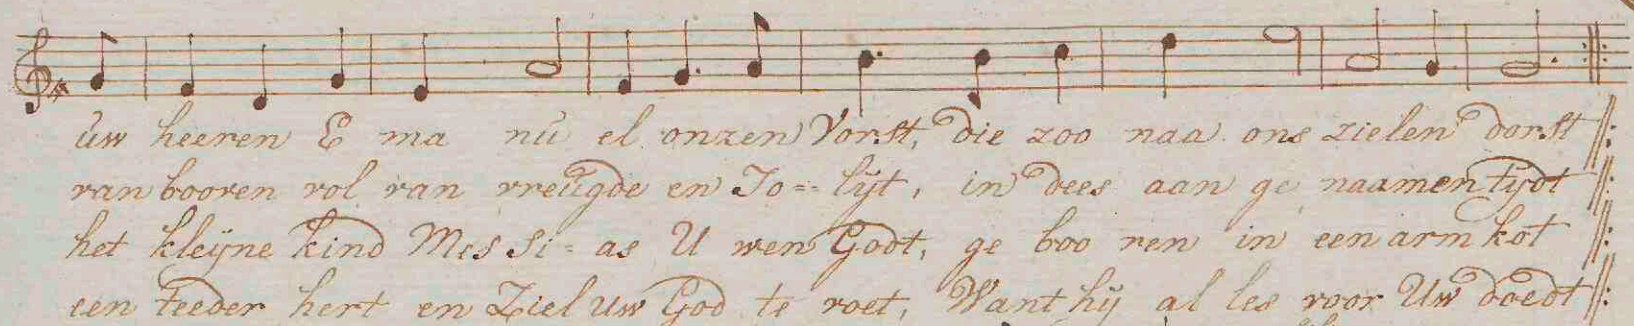 ùw heeren E ma nù el onzen Vorst, die zoo naa ons zielen dorst
van booren vol van vreùgde en Jo=lÿt, in dees aan ge naamen tÿdt
het kleÿne kind Mes Si=as U wen Godt, ge boo ren in een arm kot
een teeder hert en Ziel Uw God te voet, Want hÿ al les voor Uw doedt